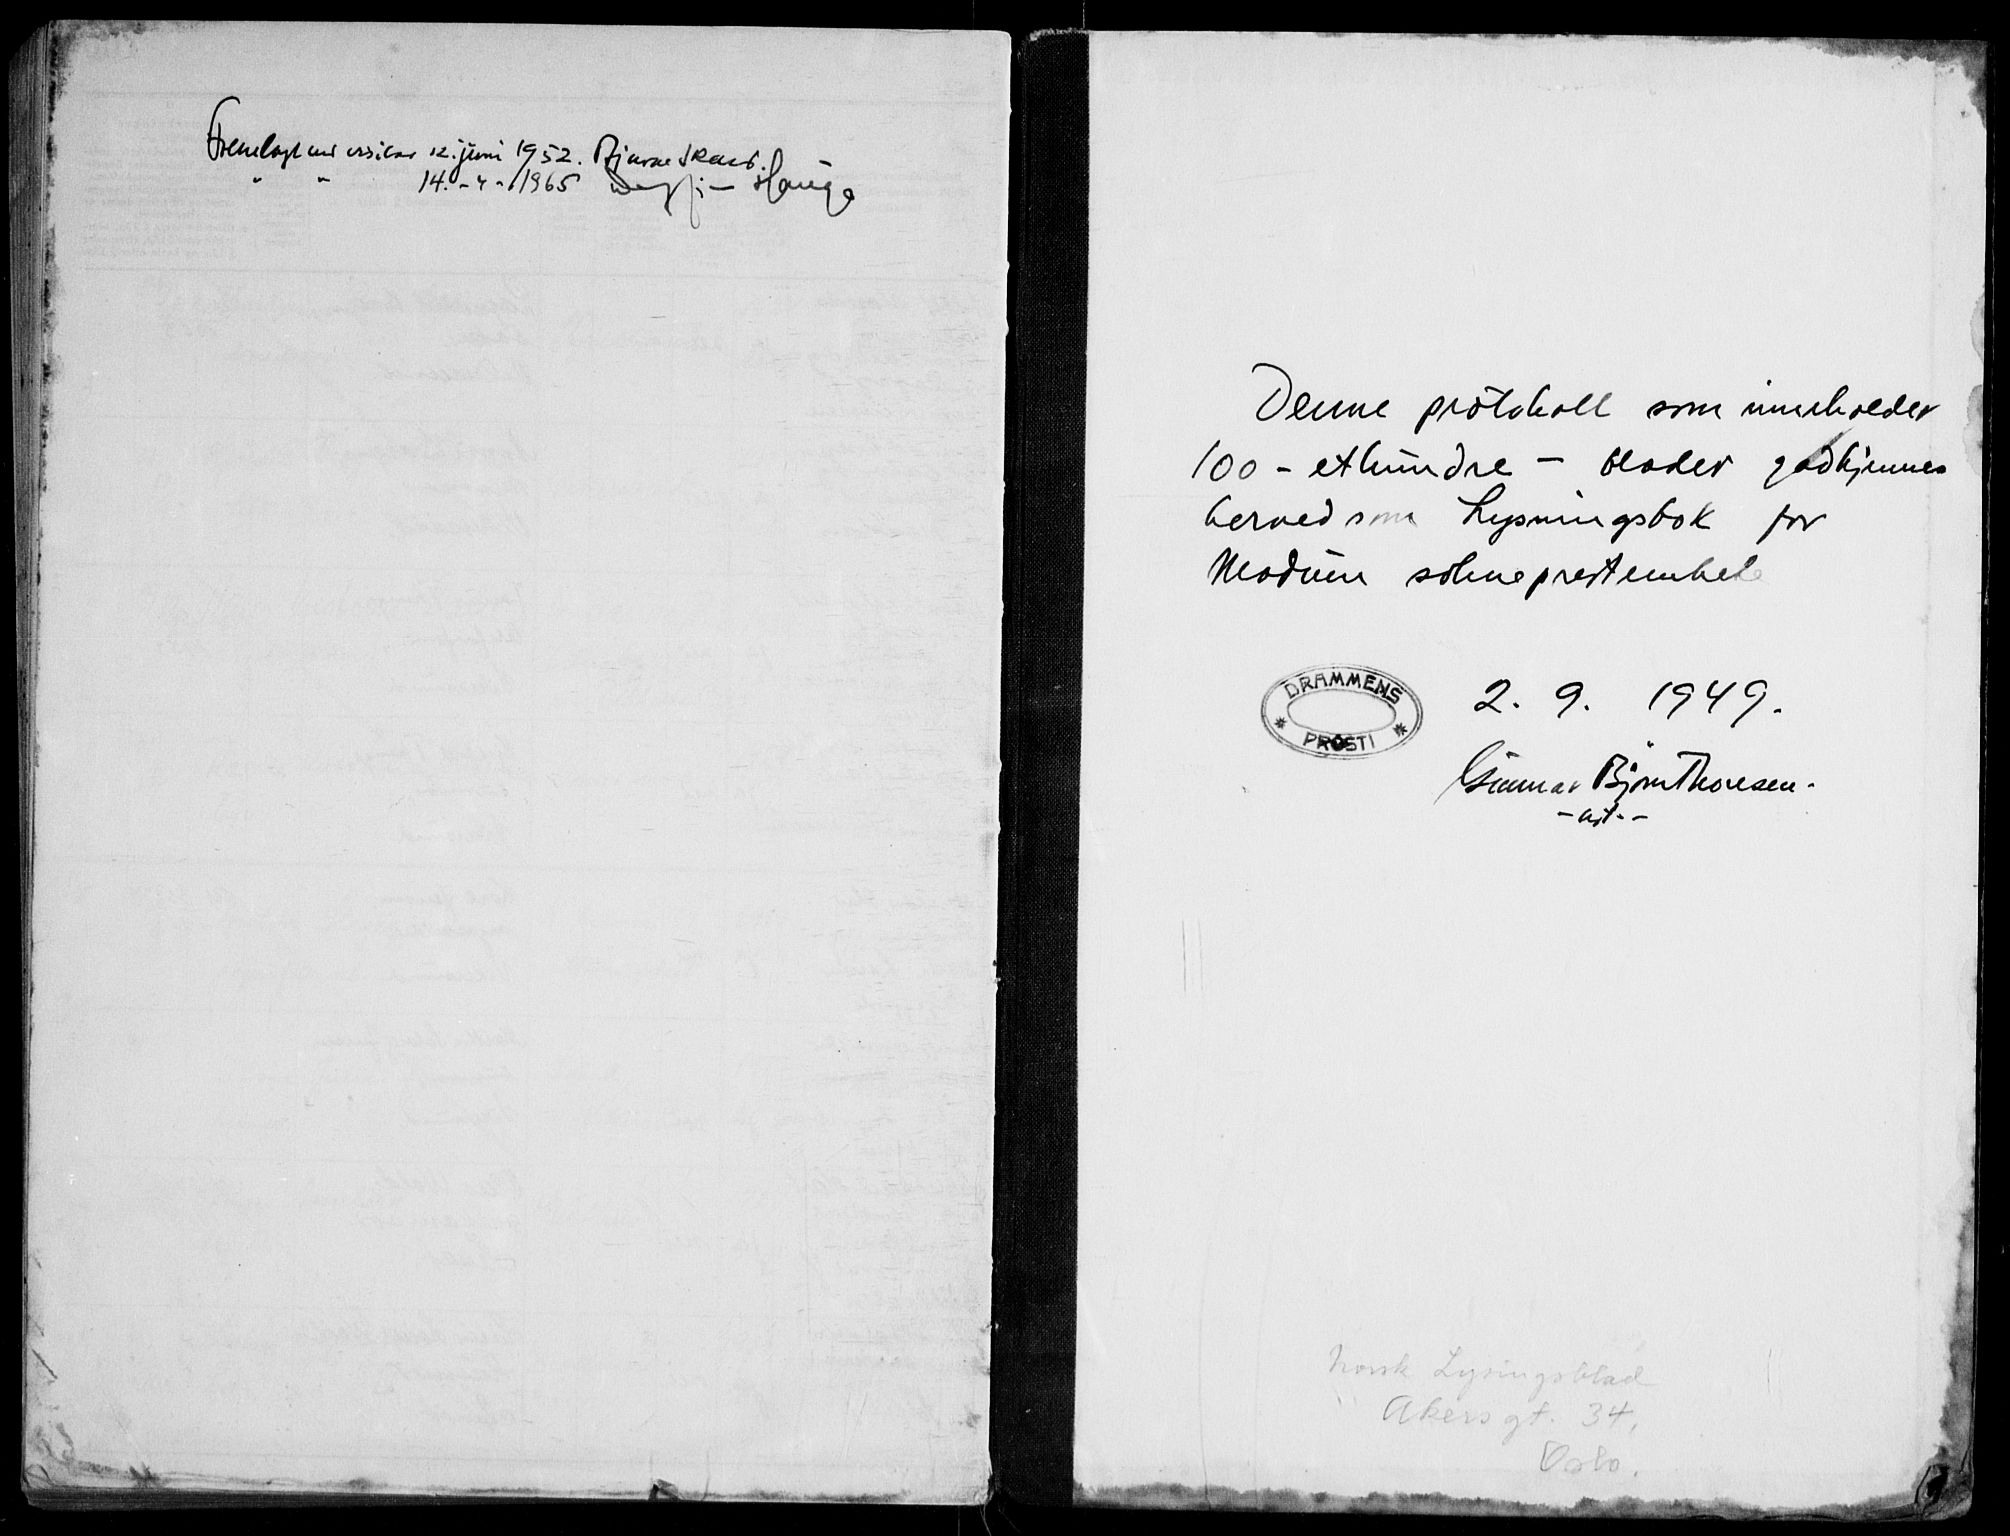 Fremlagt ved visitas 12. juni 1952. Bjarne Skard.
" " 14. - 4 - 1965 Hauge
Denne protokoll som inneholder
100 - ethundre - blader godkjennes
herved som Lysningsbok for
Modum sokneprestembete
DRAMMENS
PROSTI
2. 9. 1949.
Gunnar Bjørn Thoresen.
Norsk Lysingsblad
Akersgt. 34,
Oslo.